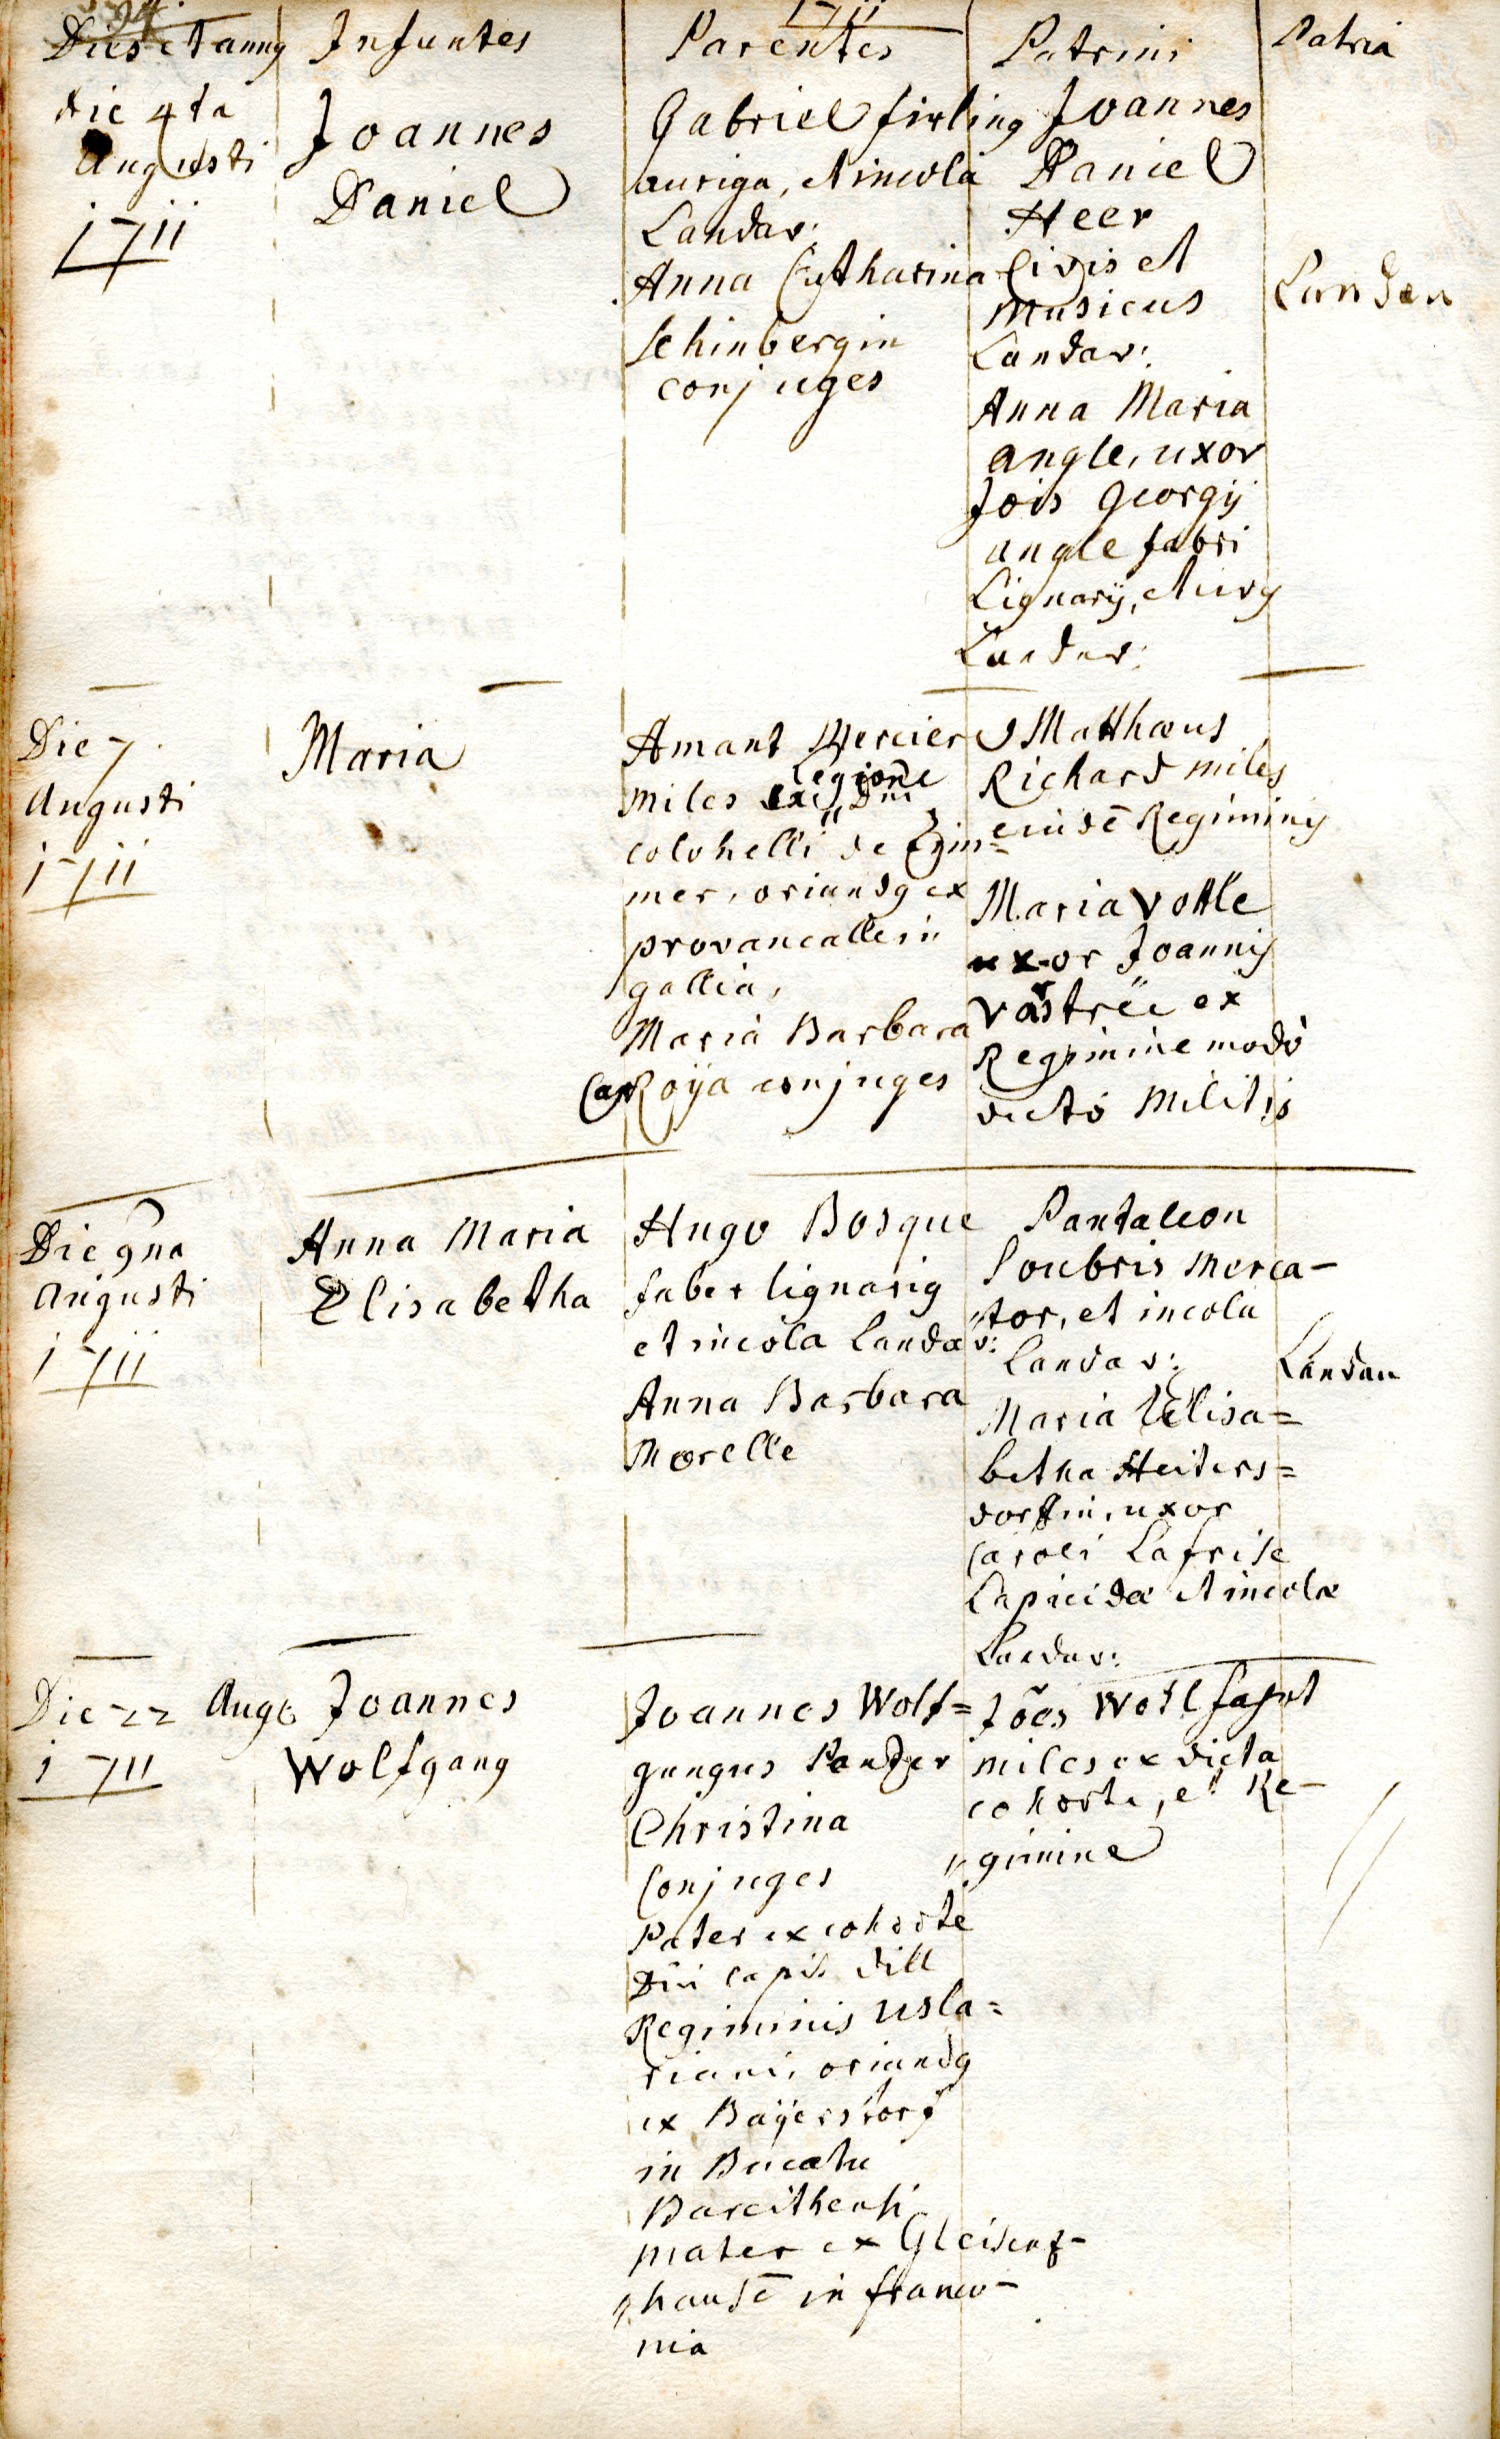 1711
Dies et annus
Infantes
Parentes
Patrini
Patria
die 4ta
Augusti
1711
Joannes
Daniel
Gabriel firling
auriga, et incola
Landav:
Anna Catharina
schinbergin
conjuges
Joannes
Daniel
Heer
Civis et
Musicus
Landav:
Anna Maria
angle, uxor
Jois Georgij
angle fabri
Lignarij, et
Landav:
Landau
Die 7.
Augusti
1711
Maria
Amant Mercier
Legione
miles Dni
colonelli de Zim=
mer, oriundg ex
provancalle in
gallia,
Maria Barbara
conjuges
Matthæus
Richard miles
eiusdē Regiminis
Maria vottle
uxor Joannis
ex
Regimine modò
dicto Militis
Die 9na
Augusti
1711
Anna Maria
Elisabetha
Hugo Bosque
faber lignarig
et incola Landav:
Anna Barbara
Morelle
Pantaleon
Soubris merca-
tor, et incola
Landav:
Maria Elisa=
betha Heiters=
dorffin, uxor
Caroli Lafrise
Lapicidæ et incolæ
Landav:
Landau
Die 22 Augti
1711
Joannes
Wolfgang
Joannes Wolf=
gangus Panzer
Christina
Conjuges
Pater ex cohorte
Dni capit. dill
Regiminis usla=
riani, oriundg
ex Baÿerstorf
in Ducatu
Bareithensi
mater ex Gleisenf-
hausē in franco-
nia
Jões Wohlfahrt
miles ex dicta
cohorte, et Re-
gimine